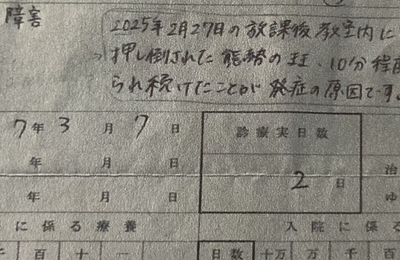 障害
2025年2月27日の放課後教室内に
押し倒された態勢のまま、10分程度
られ続けたことが発症の原因です。
7年3月7日 診療実日数
年 月 日 2日 治
年 月 日 ゆ
に係る療養 入院に係る
千 百 十 一 日数 十万 万 千 百